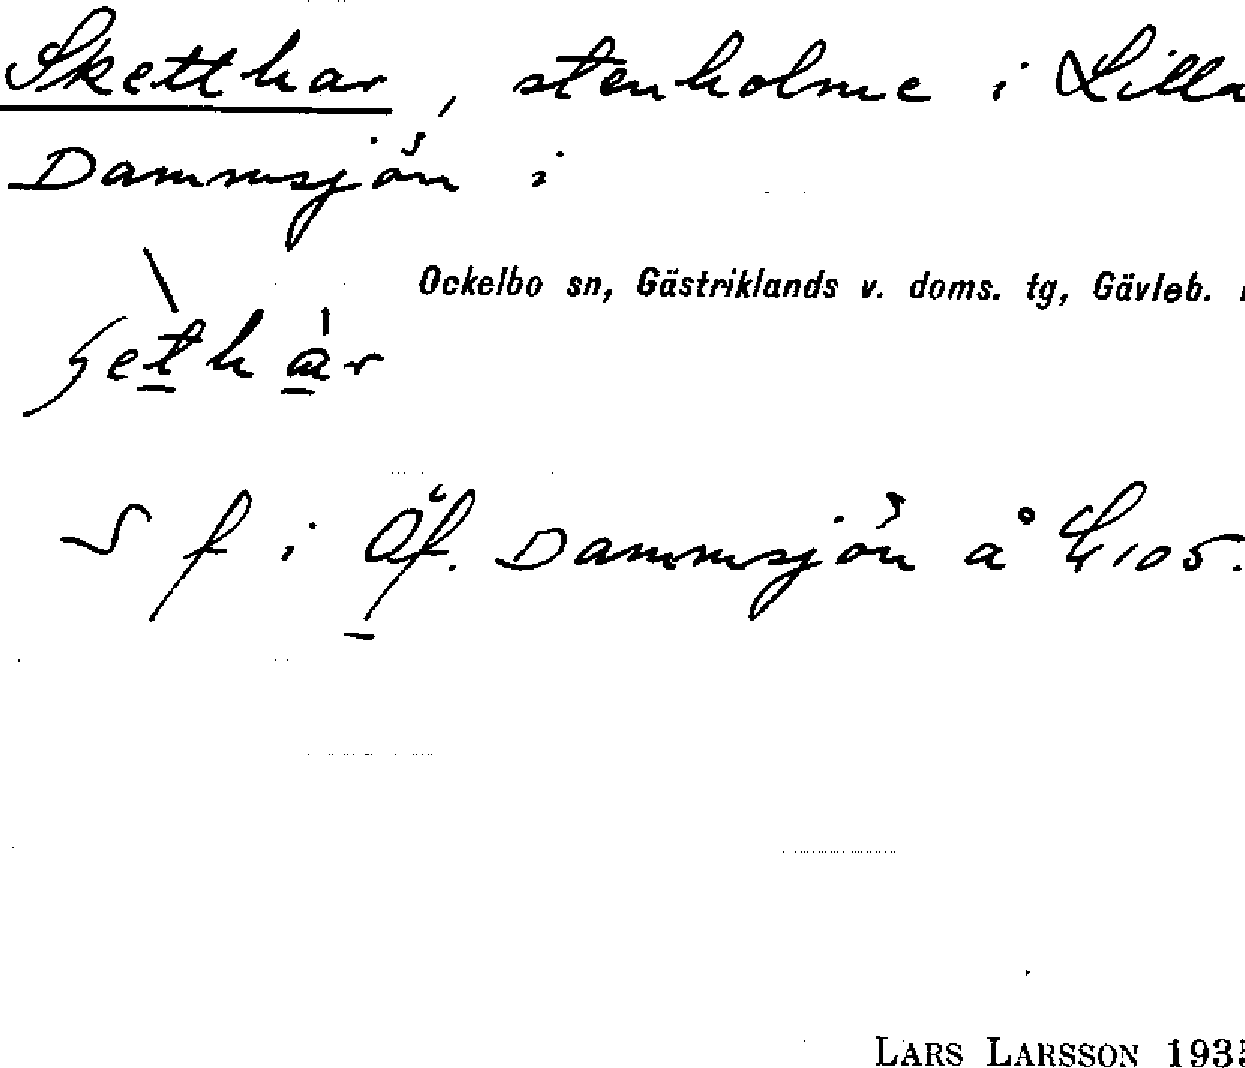 Sketthar, stenholme i Lilla
Dammsjön i
Ockelbo sn, Gästriklands v. doms. tg, Gävleb.
S f i Öf. Dammsjön å G 105.
LARS LARSSON 193